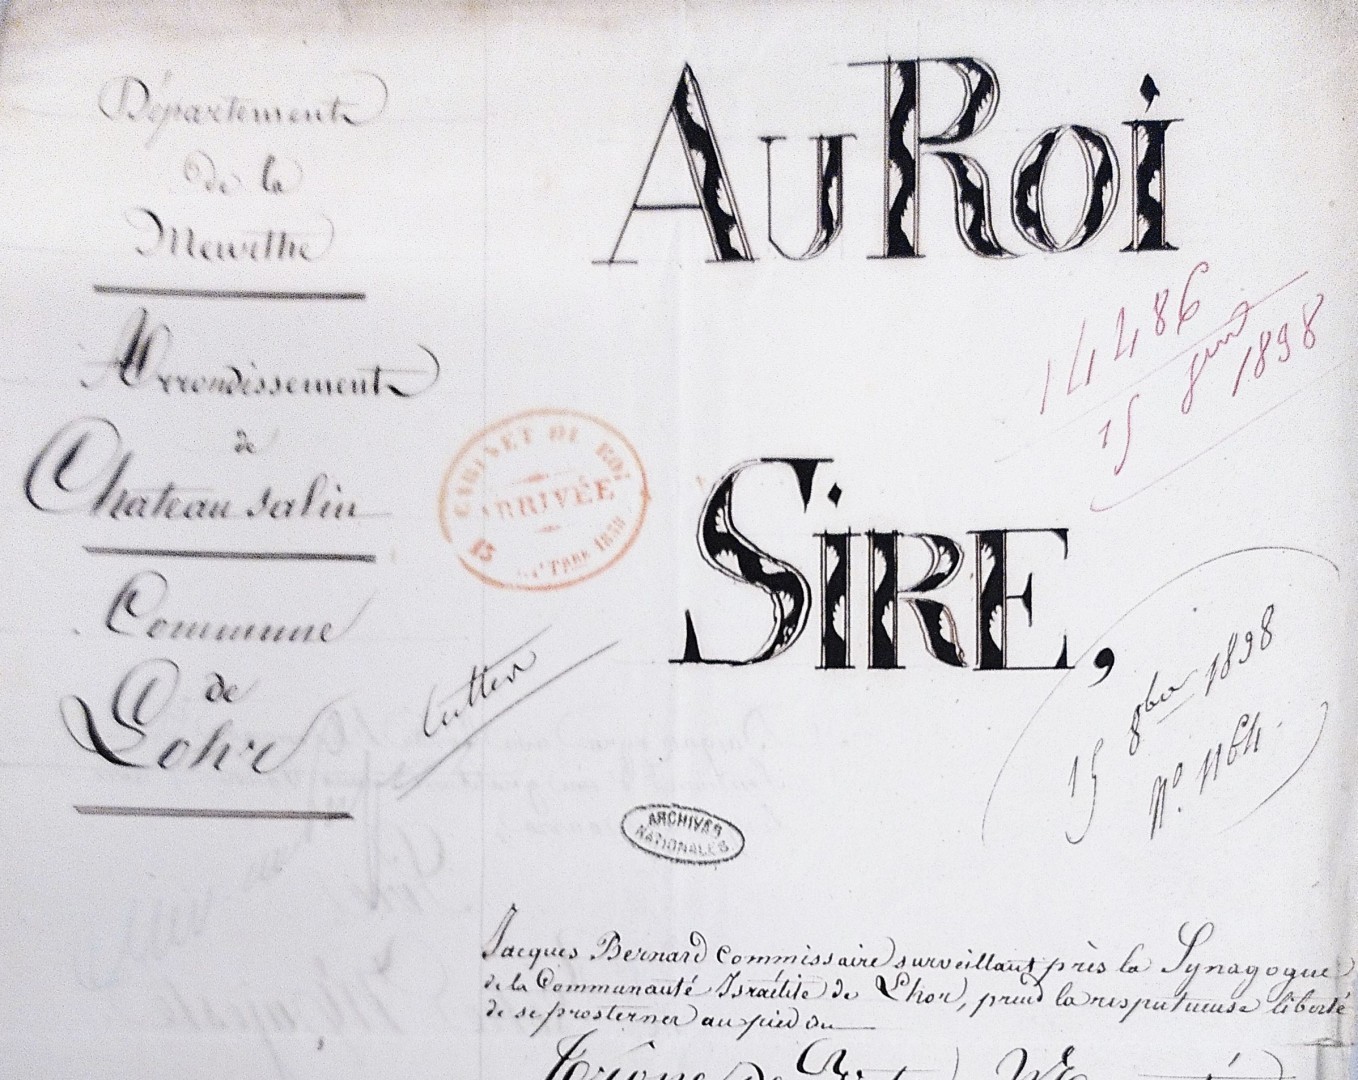 Département
de la
Meurthe
Arrondissement
de
Chateau salin
Commune
de
Lohr
Au Roi
14486
15 1838
CABINET DU ROI
ARRIVÉE
15 8bre 1838
Sire,
15 8bre 1838
N°. 1164
ARCHIVES
NATIONALES
Jacques Bernard Commissaire surveillant près la Synagogue
de la Communauté Israélite de Lhor, prend la respectueuse liberté
de se prosterner au pied du
Trône de Votre